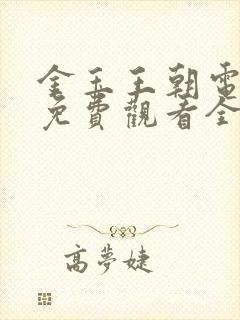 金玉王朝電
免費觀看全
高夢婕